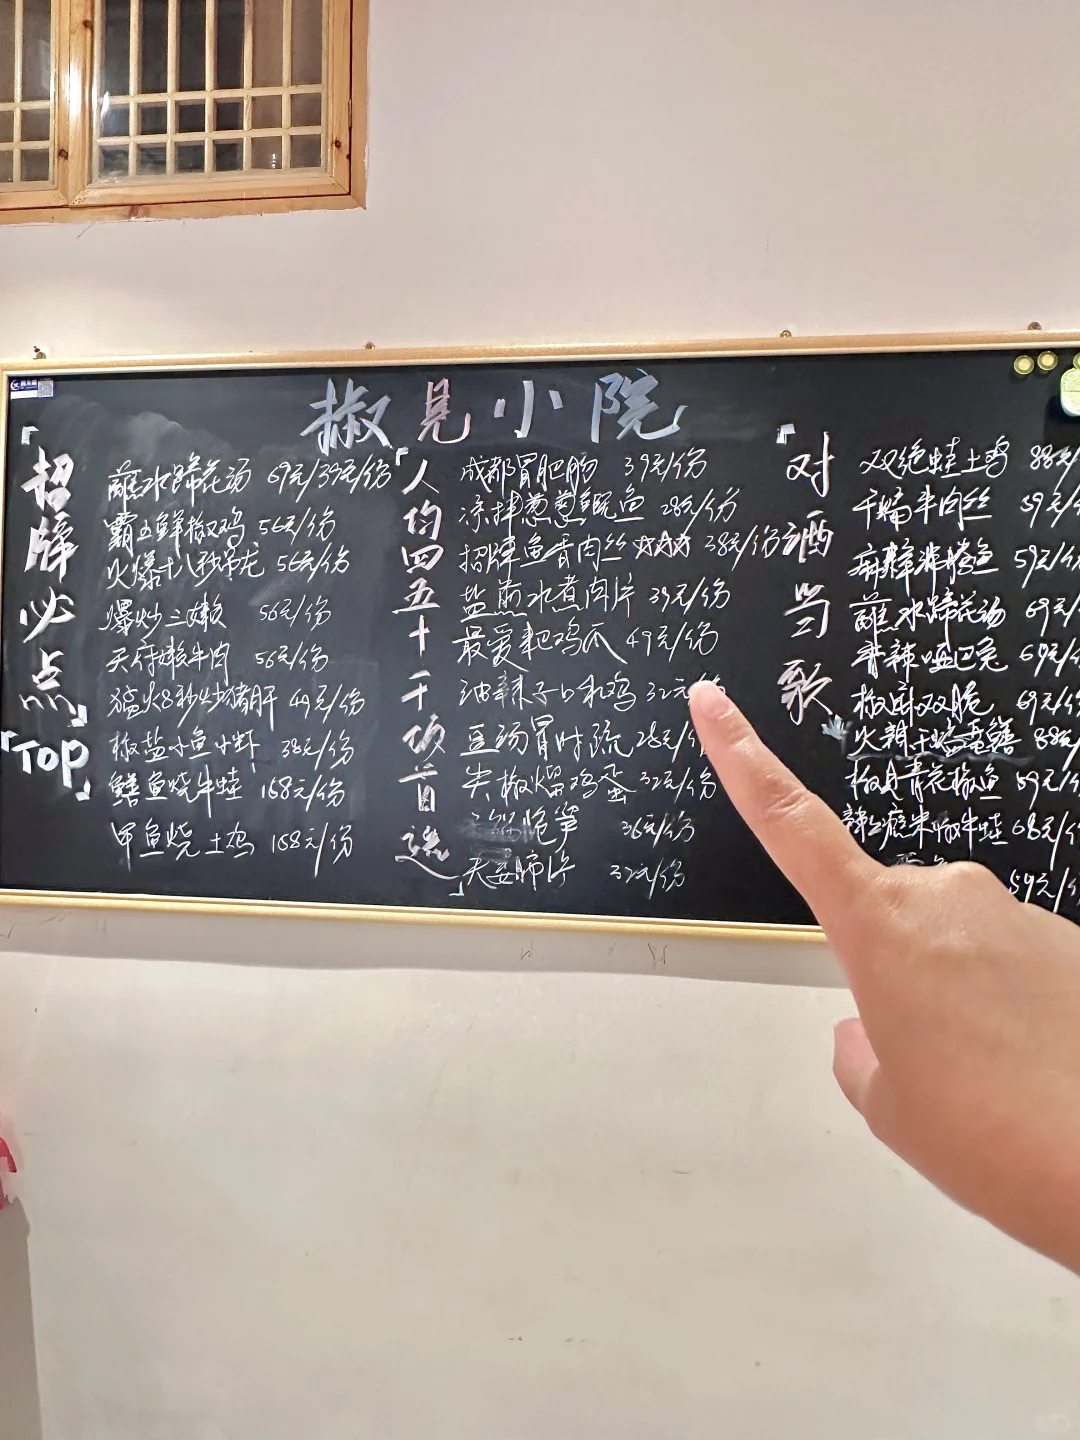 椒见小院
「招牌必点」
「TOP」
蘸水蹄花汤 69元/39元/份
霸王鲜椒鸡 56元/份
火爆十八秒吊龙 56元/份
爆炒三嫩 56元/份
天府嫩牛肉 56元/份
猛火8秒炒猪肝 49元/份
椒盐小鱼小虾 38元/份
鳝鱼烧牛蛙 168元/份
甲鱼烧土鸡 168元/份
「人均四五十干饭首选」
成都冒肥肠 39元/份
凉拌葱葱鲫鱼 28元/份
招牌鱼香肉丝 38元/份
盐煎水煮肉片 39元/份
最爱耙鸡爪 49元/份
油辣子口水鸡 32元/份
豆汤冒时蔬 28元/份
尖椒熘鸡蛋 32元/份
脆笋 36元/份
夫妻肺片 32元/份
「对酒当歌
双绝蛙土鸡 88元
干煸牛肉丝 59元/
麻辣沸腾鱼 59元/
蘸水蹄花汤 69元/
香辣哑巴兔 69元/
椒麻双脆 69元/
火辣干煸黄鳝 88元
椒房青花椒鱼 59元/
牛蛙 68元/
59元/